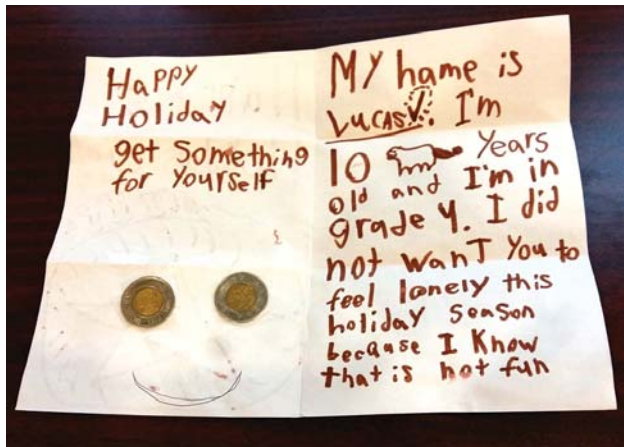 Happy
Holiday
get something
for yourself
My name is
Lucas! I'm
10 years
old and I'm in
grade 4. I did
not want you to
feel lonely this
holiday season
because I know
that is not fun